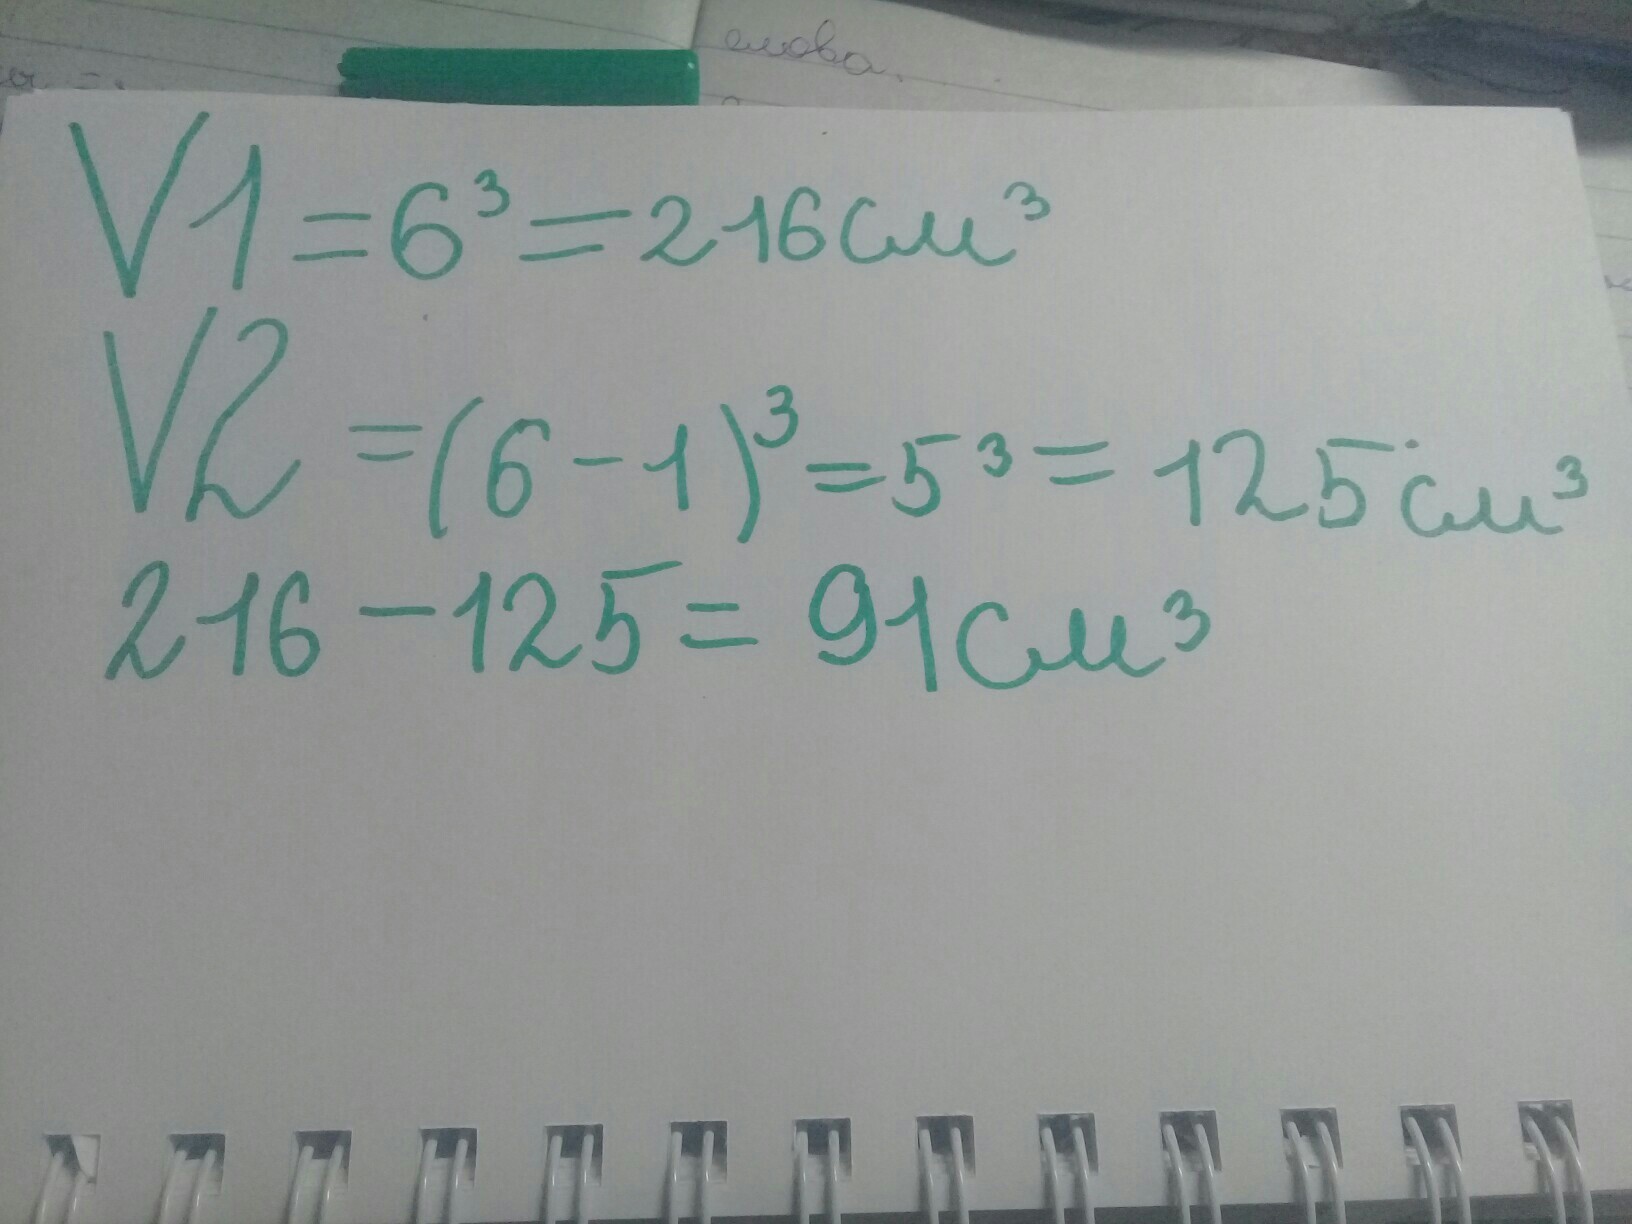 слова.
V1=6³=216см³
V2=(6-1)³=5³=125см³
216-125=91см³